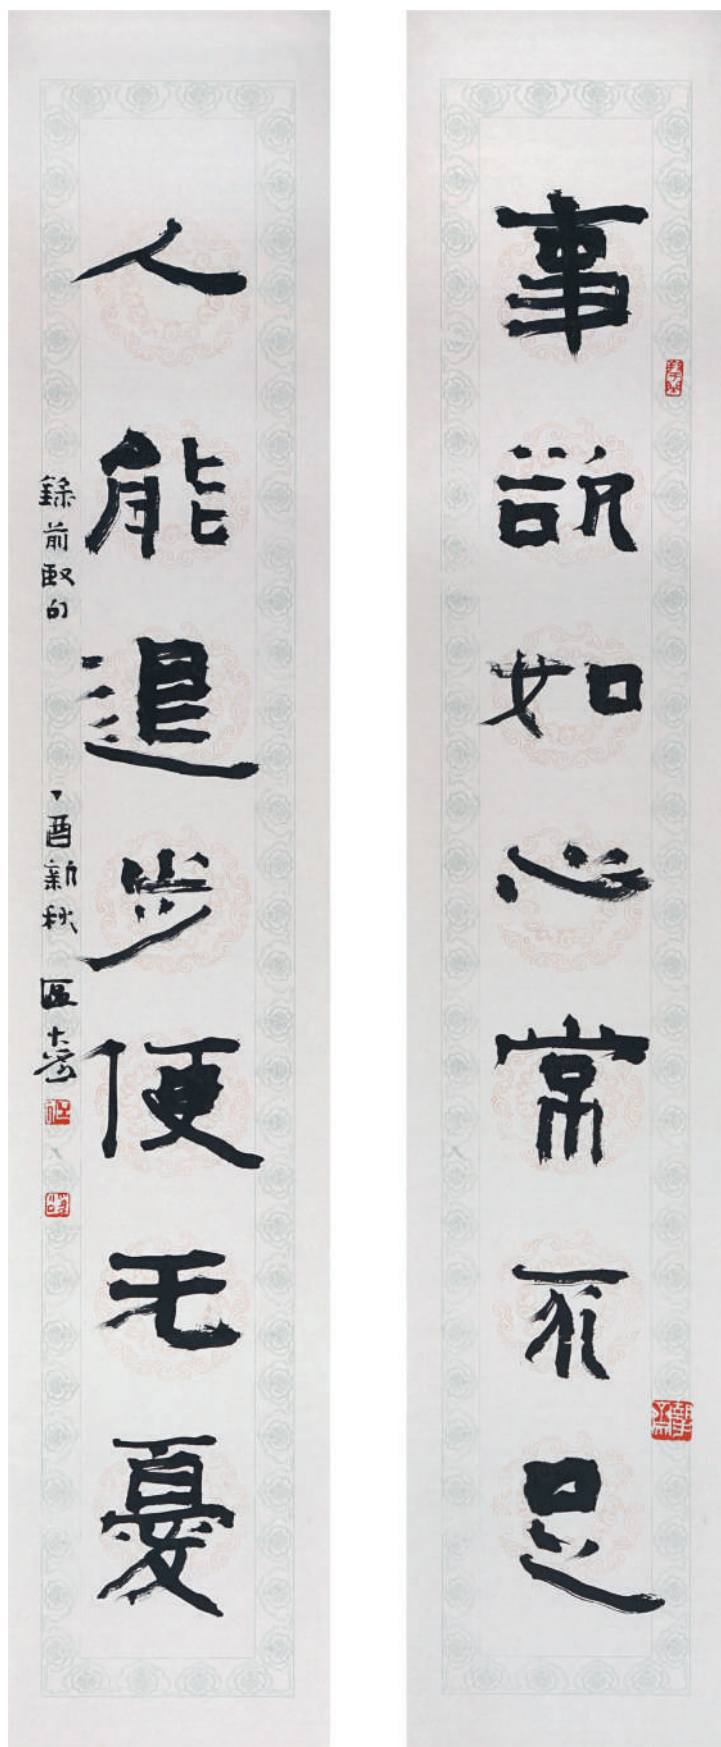 事欲如心常不足
人能退步便无憂
錄前臤句 丁酉新秋 區大為